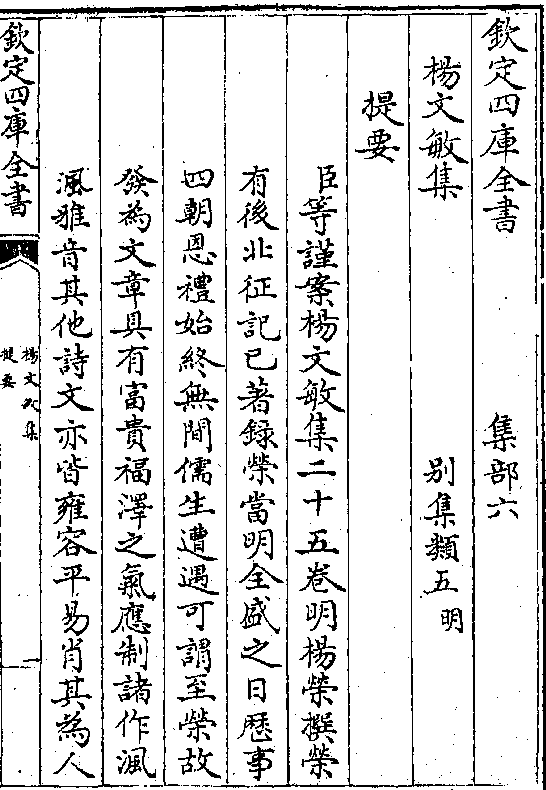 欽定四庫全書　　　　集部六
楊文敏集　　　　　別集類五明
提要
臣等謹案楊文敏集二十五卷明楊榮撰榮
有後北征記已著録榮當明全盛之日歴事
四朝恩禮始終無間儒生遭遇可謂至榮故
發為文章具有富貴福澤之氣應制諸作渢
渢雅音其他詩文亦皆雍容平易肖其為人
欽定四庫全書
楊文敏集
提要